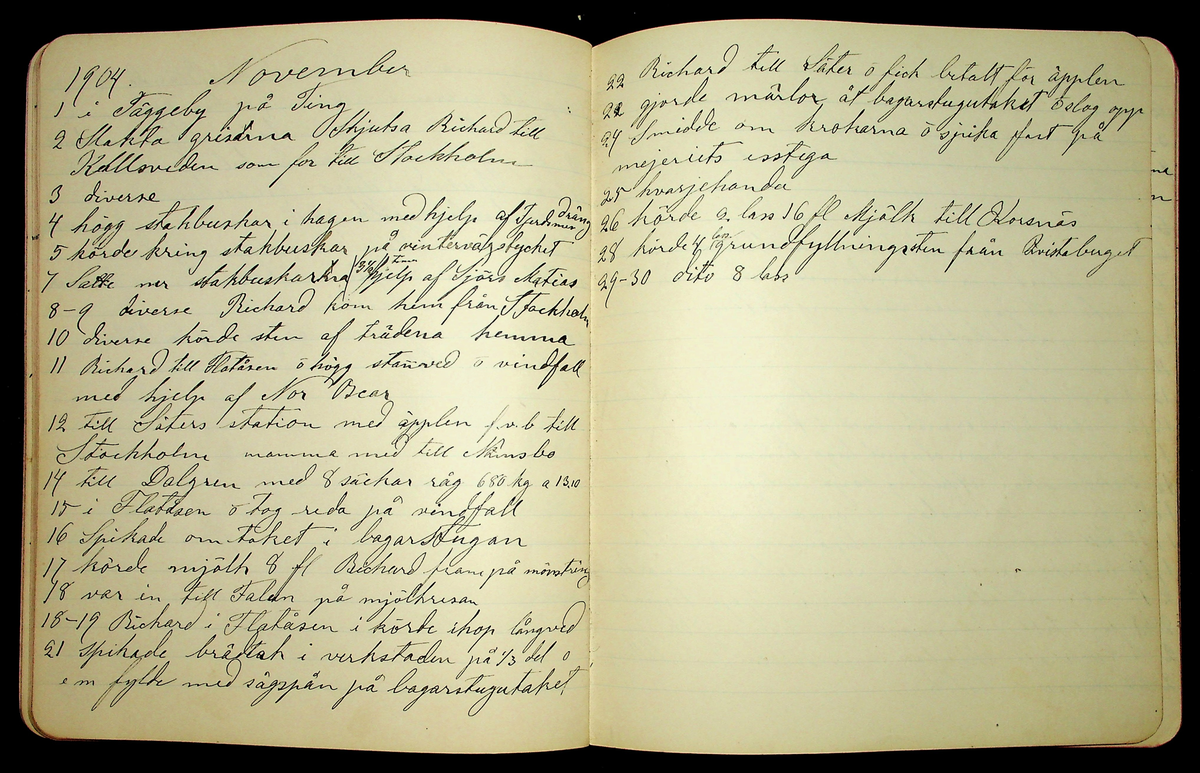 1904. November
1 i Täggeby på Ting
2 Slakta grisarna Skjutsa Richard till
Kullsveden som for till Stockholm
3 diverse
4 högg stakbuskar i hagen med hjelp af dräng
5 körde kring stakbuskar på vintervägstycket
7 Satte ner stakbuskarna 3/4 hjelp af Sjörs Matias
8-9 diverse Richard kom hem från Stockholm
10 diverse körde sten af trädena hemma
11 Richard till Flatåsen ö högg stamved ö vindfall
med hjelp af Nor Oscar
12 till Säters station med äpplen f.v.b till
Stockholm mamma med till Naimsbo
14 till Dalgren med 8 säckar råg 680 kg a 13,10
15 i Flatåsen ö tog reda på vindfall
16 Spikade om taket i bagarstugan
17 körde mjölk 8 fl Richard fram på mönstring
18 var in till Falun på mjölkresan
18-19 Richard i Flatåsen i körde ihop långved
21 spikade brädtak i verkstaden på 1/3 del ö
e m fylde med sågspån på bagarstugutaket
22 Richard till Säter ö fick betalt för äpplen
22 gjorde märlor åt bagarstugutaket ö slog opp
24 Smidde om krokarna ö spika fast på
mejeriets isstiga
25 hvarjehanda
26 körde 2. lass 16 fl Mjölk till Korsnäs
28 körde 4 lass grundfyllningssten från Qvistaberget
29-30 dito 8 lass